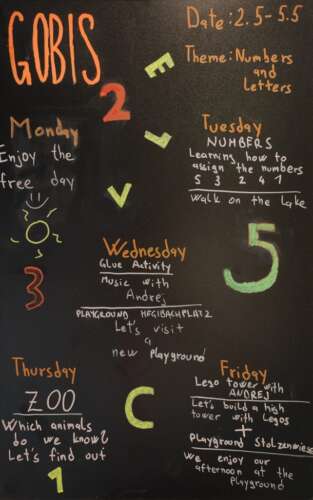 GOBIS
Date: 2.5-5.5
Theme: Numbers
and
Letters
2
E
L
V
Monday
Enjoy the
free day
3
Tuesday
NUMBERS
Learning how to
assign the numbers
5 3 2 4 1
Walk on the Lake
5
Wednesday
Glue Activity
Music with
Andrej
PLAYGROUND HEGIBACHPLATZ
Let's visit
a
new Playground
Thursday
ZOO
Which animals
do we know?
Let's find out
1
C
Friday
Lego tower with
ANDREJ
Let's build a high
tower with Legos
+
Playground Stolzenwiese
We enjoy our
afternoon at the
Playground